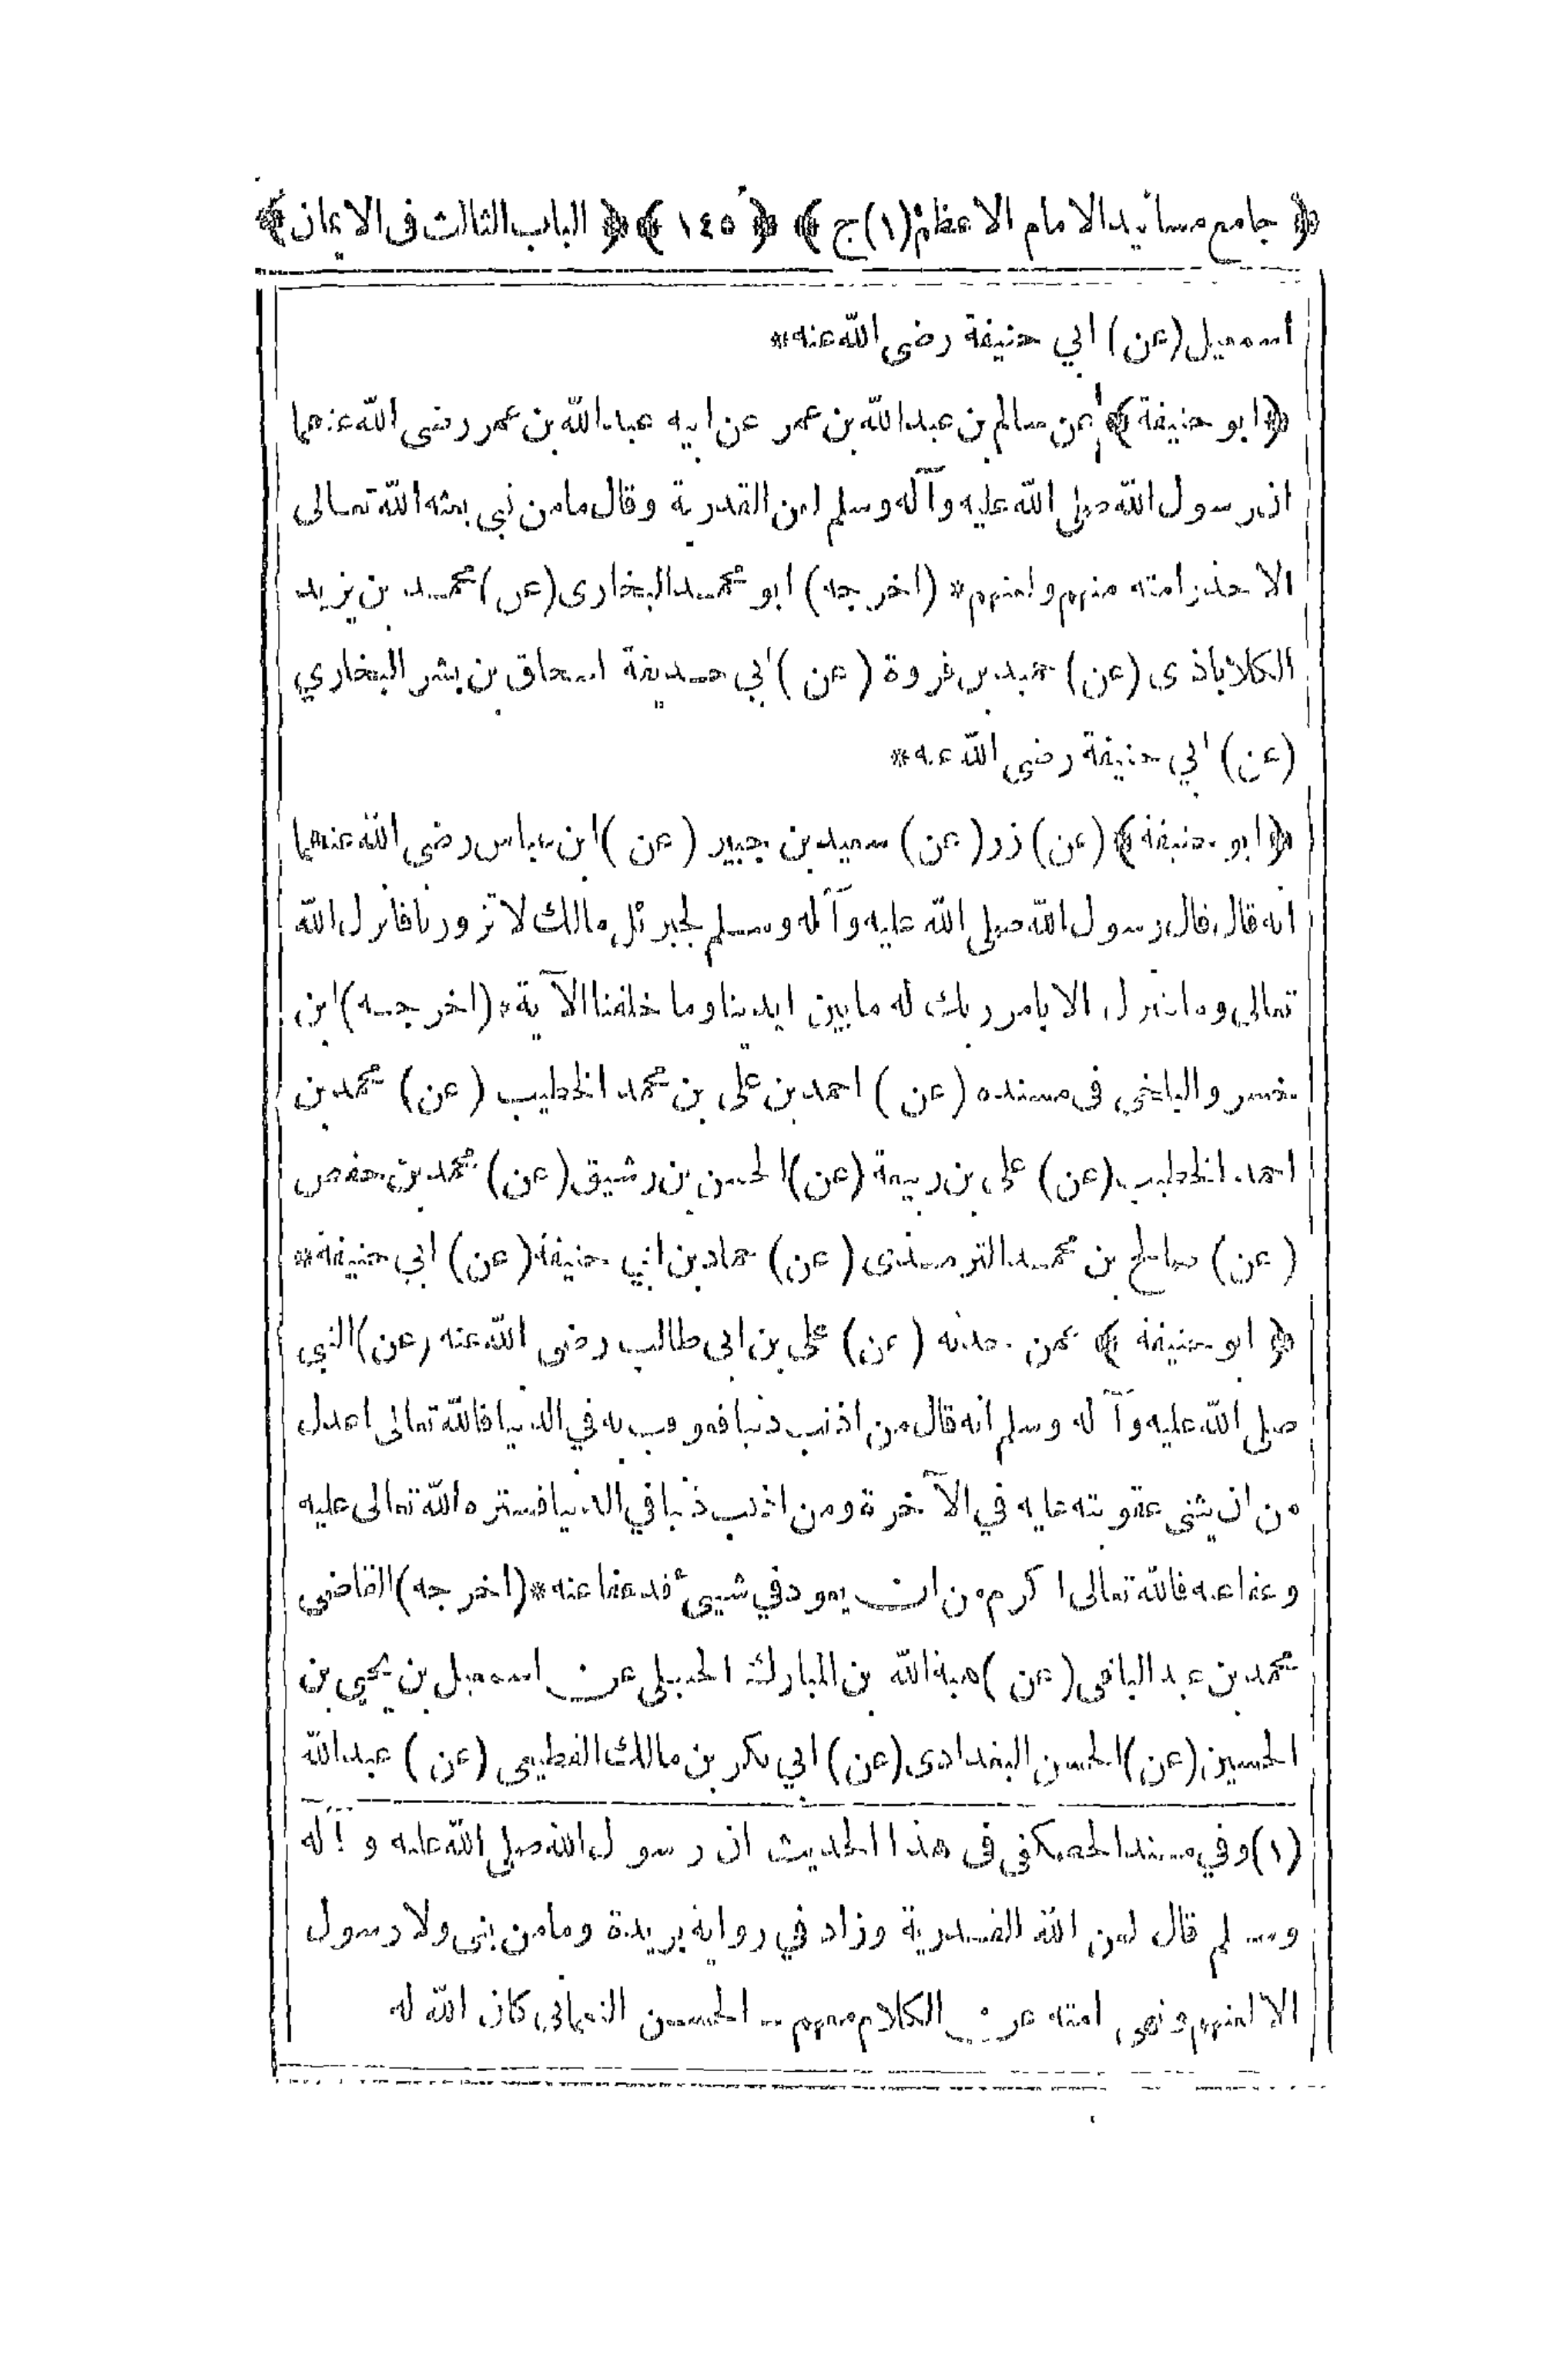 ﴿ جامع مسانيد الامام الاعظم (١) ج ﴾ ﴿ ١٤٥ ﴾ ﴿ الباب الثالث فى الايمان ﴾
اسمعيل (عن) ابي حنيفة رضى الله عنه *
﴿ ابو حنيفة ﴾ عن سالم بن عبد الله بن عمر عن ابيه عبد الله بن عمر رضى الله عنهما
ان رسول الله صلى الله عليه وآله وسلم لعن القدرية وقال مامن نبي بعثه الله تعالى
الا حذر امته منهم ولعنهم * (اخرجه) ابو محمد البخارى (عن) محمد بن يزيد
الكلاباذى (عن) عبيد بن فروة (عن) ابي حذيفة اسحاق بن بشر البخاري
(عن) ابي حنيفة رضى الله عنه *
﴿ ابو حنيفة ﴾ (عن) زر (عن) سعيد بن جبير (عن) ابن عباس رضى الله عنهما
انه قال قال رسول الله صلى الله عليه وآله وسلم لجبرئل مالك لا تزورنا فانزل الله
تعالى وما نتنزل الا بامر ربك له ما بين ايدينا وما خلفنا الآية * (اخرجه) ابن
خسرو البلخى فى مسنده (عن) احمد بن على بن محمد الخطيب (عن) محمد بن
احمد الخطيب (عن) على بن ربيعة (عن) الحسن بن رشيق (عن) محمد بن حفص
(عن) صالح بن محمد الترمذى (عن) حماد بن ابي حنيفة (عن) ابي حنيفة *
﴿ ابو حنيفة ﴾ عمن حدثه (عن) على بن ابى طالب رضى الله عنه (عن) النبي
صلى الله عليه وآله وسلم انه قال من اذنب ذنبا فعوقب به في الدنيا فالله تعالى اعدل
من ان يثنى عقوبته عليه في الآخرة ومن اذنب ذنبا في الدنيا فستره الله تعالى عليه
وعفا عنه فالله تعالى اكرم من ان يعود في شيئ قد عفا عنه * (اخرجه) القاضى
محمد بن عبد الباقى (عن) هبة الله بن المبارك الحنبلى عن اسمعيل بن يحيي بن
الحسين (عن) الحسن البغدادى (عن) ابي بكر بن مالك القطيعى (عن) عبد الله
(١) وفي مسند الحصكفي فى هذا الحديث ان رسول الله صلى الله عليه وآله
وسلم قال لعن الله القدرية وزاد في رواية بريدة وما من نبى ولا رسول
الا لعنهم ونهى امته عن الكلام معهم .. الحسن النعمانى كان الله له